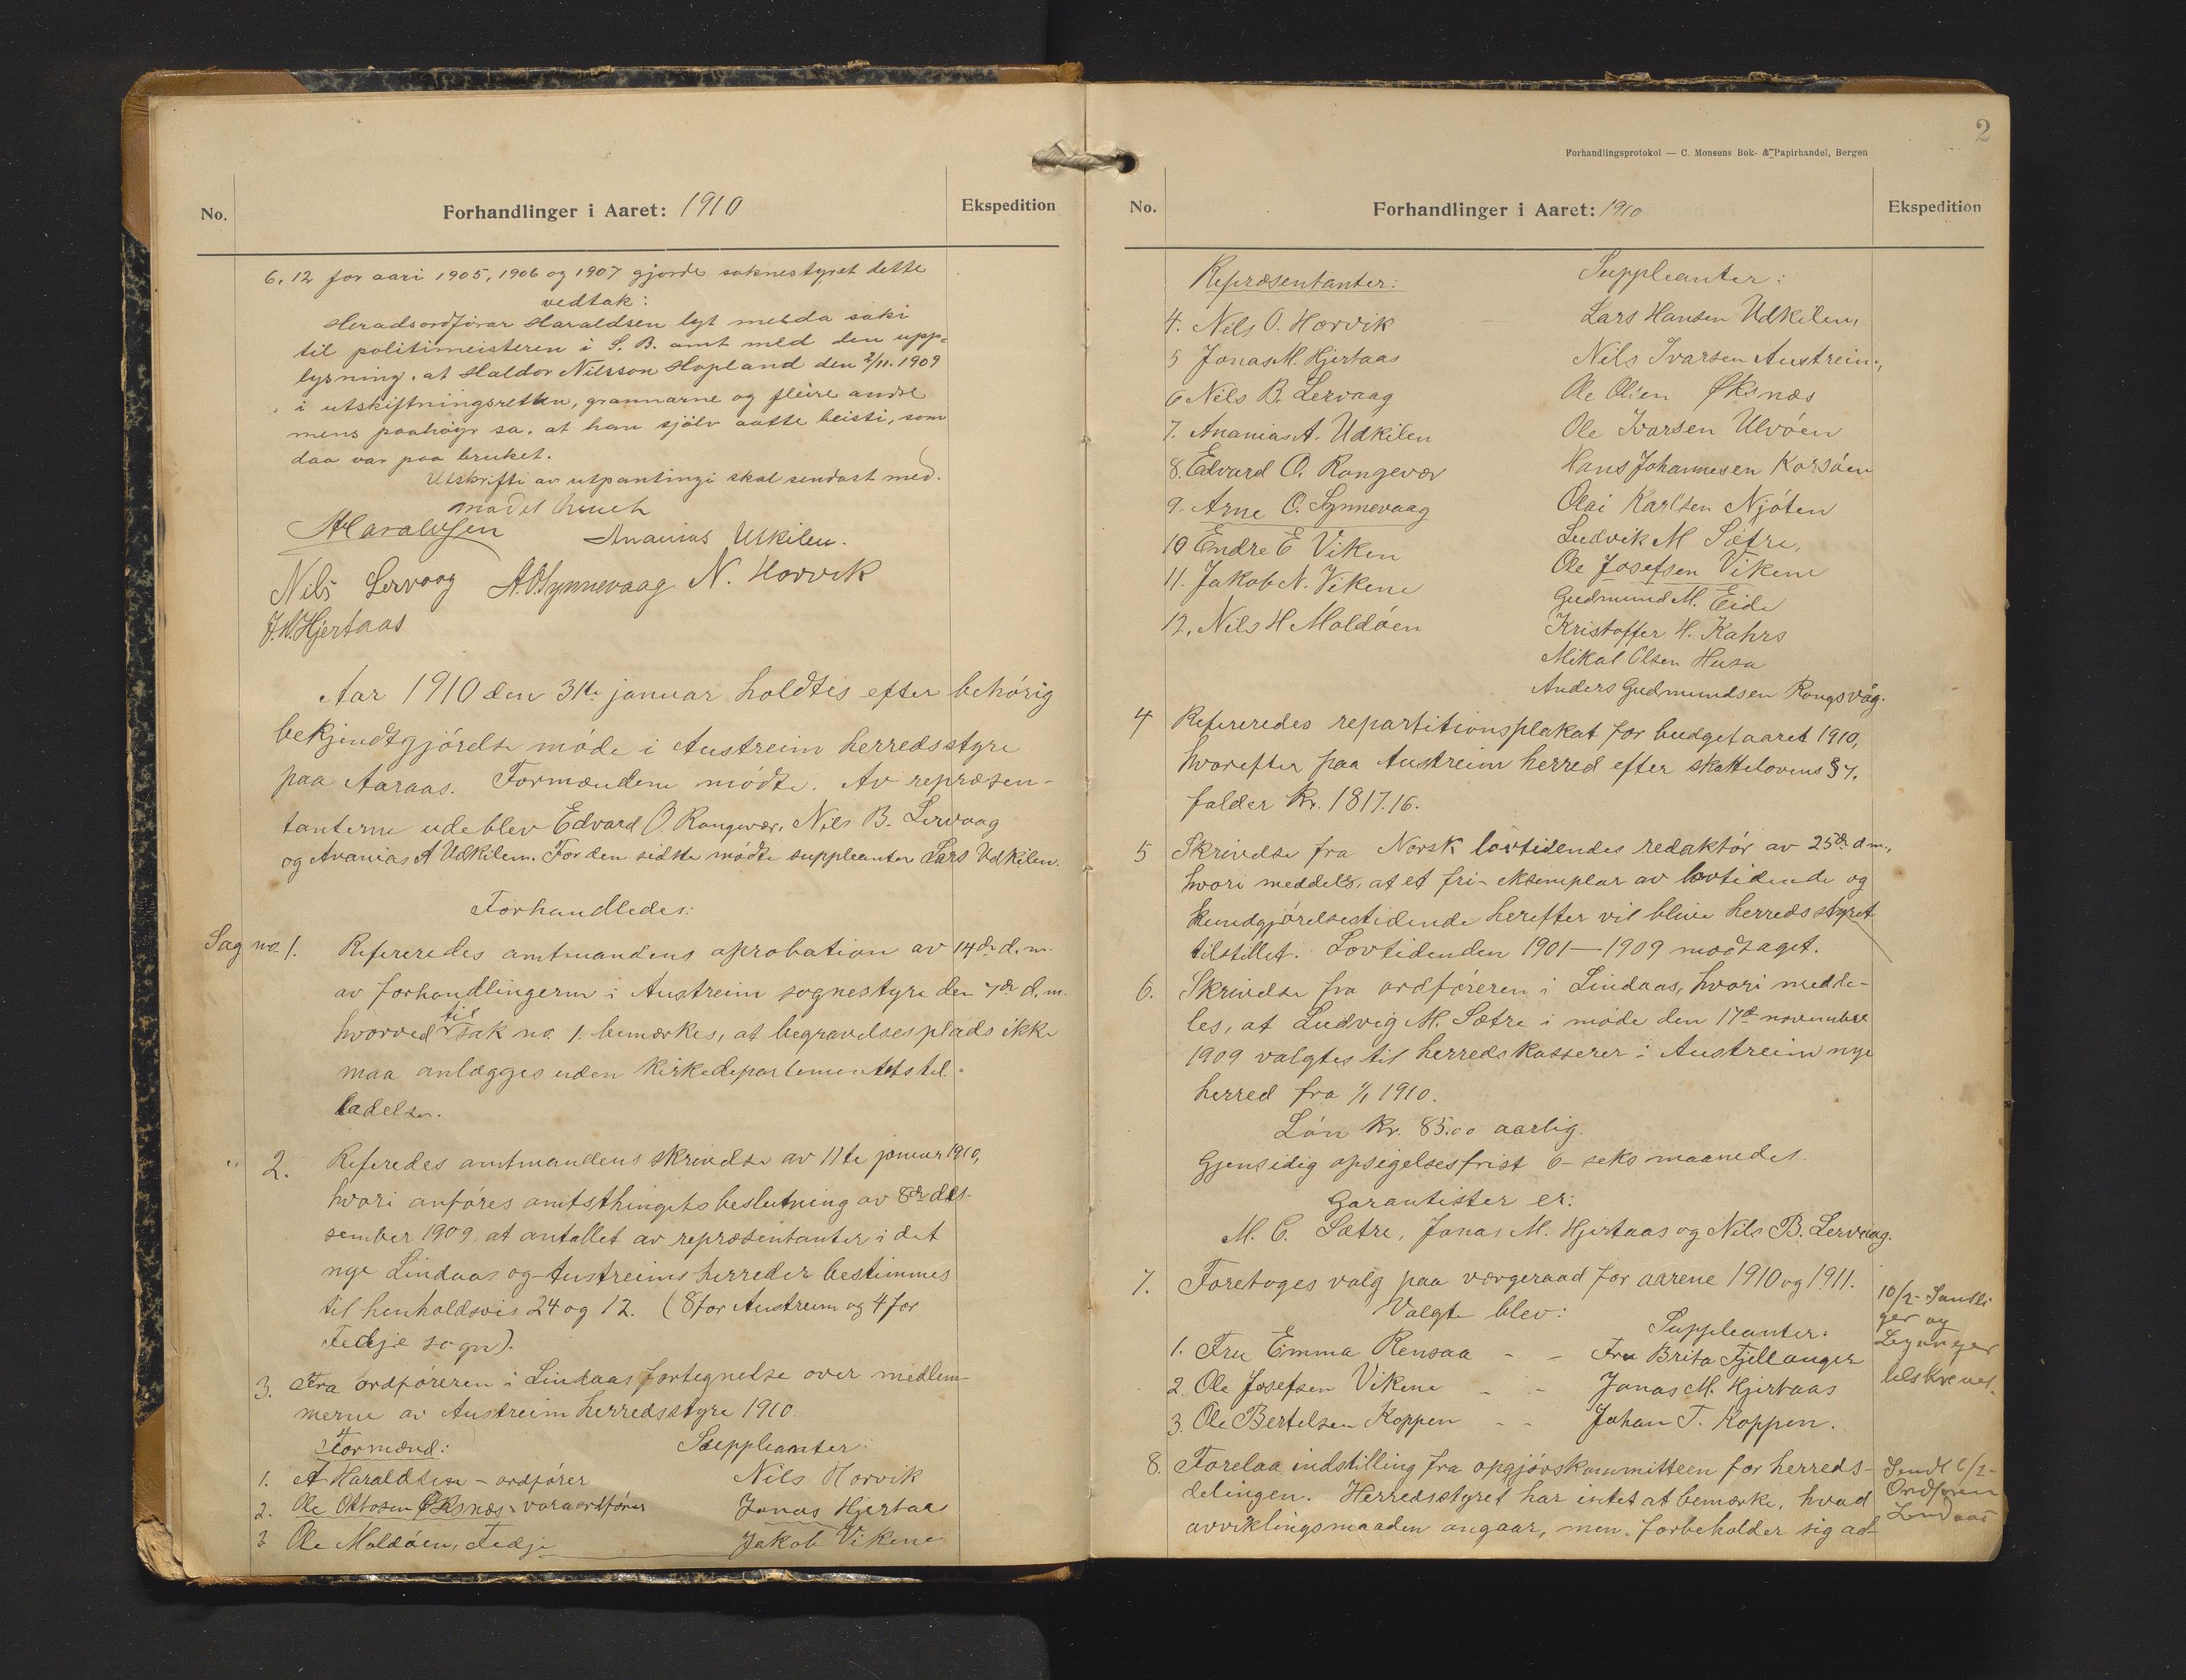 No.
Forhandlinger i Aaret: 1910
Ekspedition
6, 12 for aari 1905, 1906 og 1907 gjorde soknestyret dette
vedtak:
Heradsordförar Haraldsen lyt melda saki
til politimeisteren i S. B. amt med den upp-
lysning, at Haldor Nilsson Hopland den 2/11. 1909
i utskiftningsretten, grannarne og fleire andre
mens paahøyr sa, at han sjölv aatte beisti, som
daa var paa bruket.
Utskrifti av utpantingi skal sendast med.
Mødet hævet
AHaraldsen
Ananias Utkilen.
Nils Lervaag A.O.Synnevaag N. Horvik
J.M.Hjertaas
Aar 1910 den 31te januar holdtes efter behörig
bekjendtgjörelse möde i Austreim herredsstyre
paa Aaraas. Formændene mödte. Av repræsen-
tanterne udeblev Edvard O. Rongevær, Nils B. Lervaag
og Ananias A Udkilen. For den sidste mödte suppleanten Lars Udkilen.
Forhandledes:
Sag no. 1. Refereredes amtmandens aprobation av 14de d. m.
av forhandlingerne i Austreim sognestyre den 7de d. m.
hvorved til sak no. 1. bemærkes, at begravelsesplads ikke
maa anlægges uden Kirkedepartementets til-
ladelse.
" 2. Referedes amtmandens skrivelse av 11te januar 1910,
hvori anföres amtsthingets beslutning av 8de des-
sember 1909, at antallet av repræsentanter i det
nye Lindaas og Austreims herreder bestimmes
til henholdsvis 24 og 12. (8 for Austreim og 4 for
Fedje sogn).
3. Fra ordföreren i Lindaas fortegnelse over medlem-
merne av Austreim herredsstyre 1910.
Formænd: Suppleanter:
1. A Haraldsen – ordförer Nils Horvik
2. Ole Ottosen Öksnæs – varaordförer Jonas Hjertaas
3 Ole Moldöen, Fedje Jakob Vikene
2
Forhandlingsprotokol — C. Monsens Bok- & Papirhandel, Bergen
No.
Forhandlinger i Aaret: 1910
Ekspedition
Repræsentanter: Suppleanter:
4. Nils O. Horvik Lars Hansen Udkilen,
5 Jonas M. Hjertaas Nils Ivarsen Austreim,
6 Nils B. Lervaag Ole Olsen Øksnæs
7. Ananias A. Udkilen Ole Ivarsen Ulvöen
8. Edvard O. Rongevær Hans Johannesen Korsöen
9. Arne O. Synnevaag Olai Karlsen Njöten
10 Endre E Viken Ludvik M Sætre,
11. Jakob N. Vikene Ole Josefsen Vikene
Gudmund M. Eide
12. Nils H Moldöen Kristoffer H. Kahrs
Mikal Olsen Husa
Anders Gudmundsen Rongsvåg.
4 Refereredes repartitionsplakat for budgetaaret 1910,
hvorefter paa Austreim herred efter skattelovens § 7.
falder kr. 1817.16.
5 Skrivelse fra Norsk lovtidendes redaktör av 25de d m.,
hvori meddeles, at et fri-eksemplar av lovtidende og
kundgjörelsestidende herefter vil blive herredsstyret
tilstillet. Lovtidenden 1901—1909 modtaget.
6. Skrivelse fra ordföreren i Lindaas, hvori medde-
les, at Ludvig M. Sætre i möde den 17de november
1909 valgtes til herredskasserer i Austreim nye
herred fra 1/1 1910.
Lön kr. 85.00 aarlig.
Gjensidig opsigelsesfrist 6 – seks maaneder.
Garantister er:
M. C. Sætre, Jonas M. Hjertaas og Nils B. Lervaag.
7. Foretoges valg paa værgeraad for aarene 1910 og 1911.
Valgte blev: Suppleanter:
1. Fru Emma Rensaa – – Fru Brita Fjellanger
2. Ole Josefsen Vikene – – Jonas M. Hjertaas
3. Ole Bertelsen Koppen – – Johan T. Koppen.
10/2
ger og
tilskrevet.
8. Forelaa indstilling fra opgjörskommitteen for herreds-
delingen. Herredsstyret har intet at bemerke, hvad
avviklingsmaaden angaar, men forbeholder sig ad-
Sendt 6/2 –
Ordföreren
Lindaas